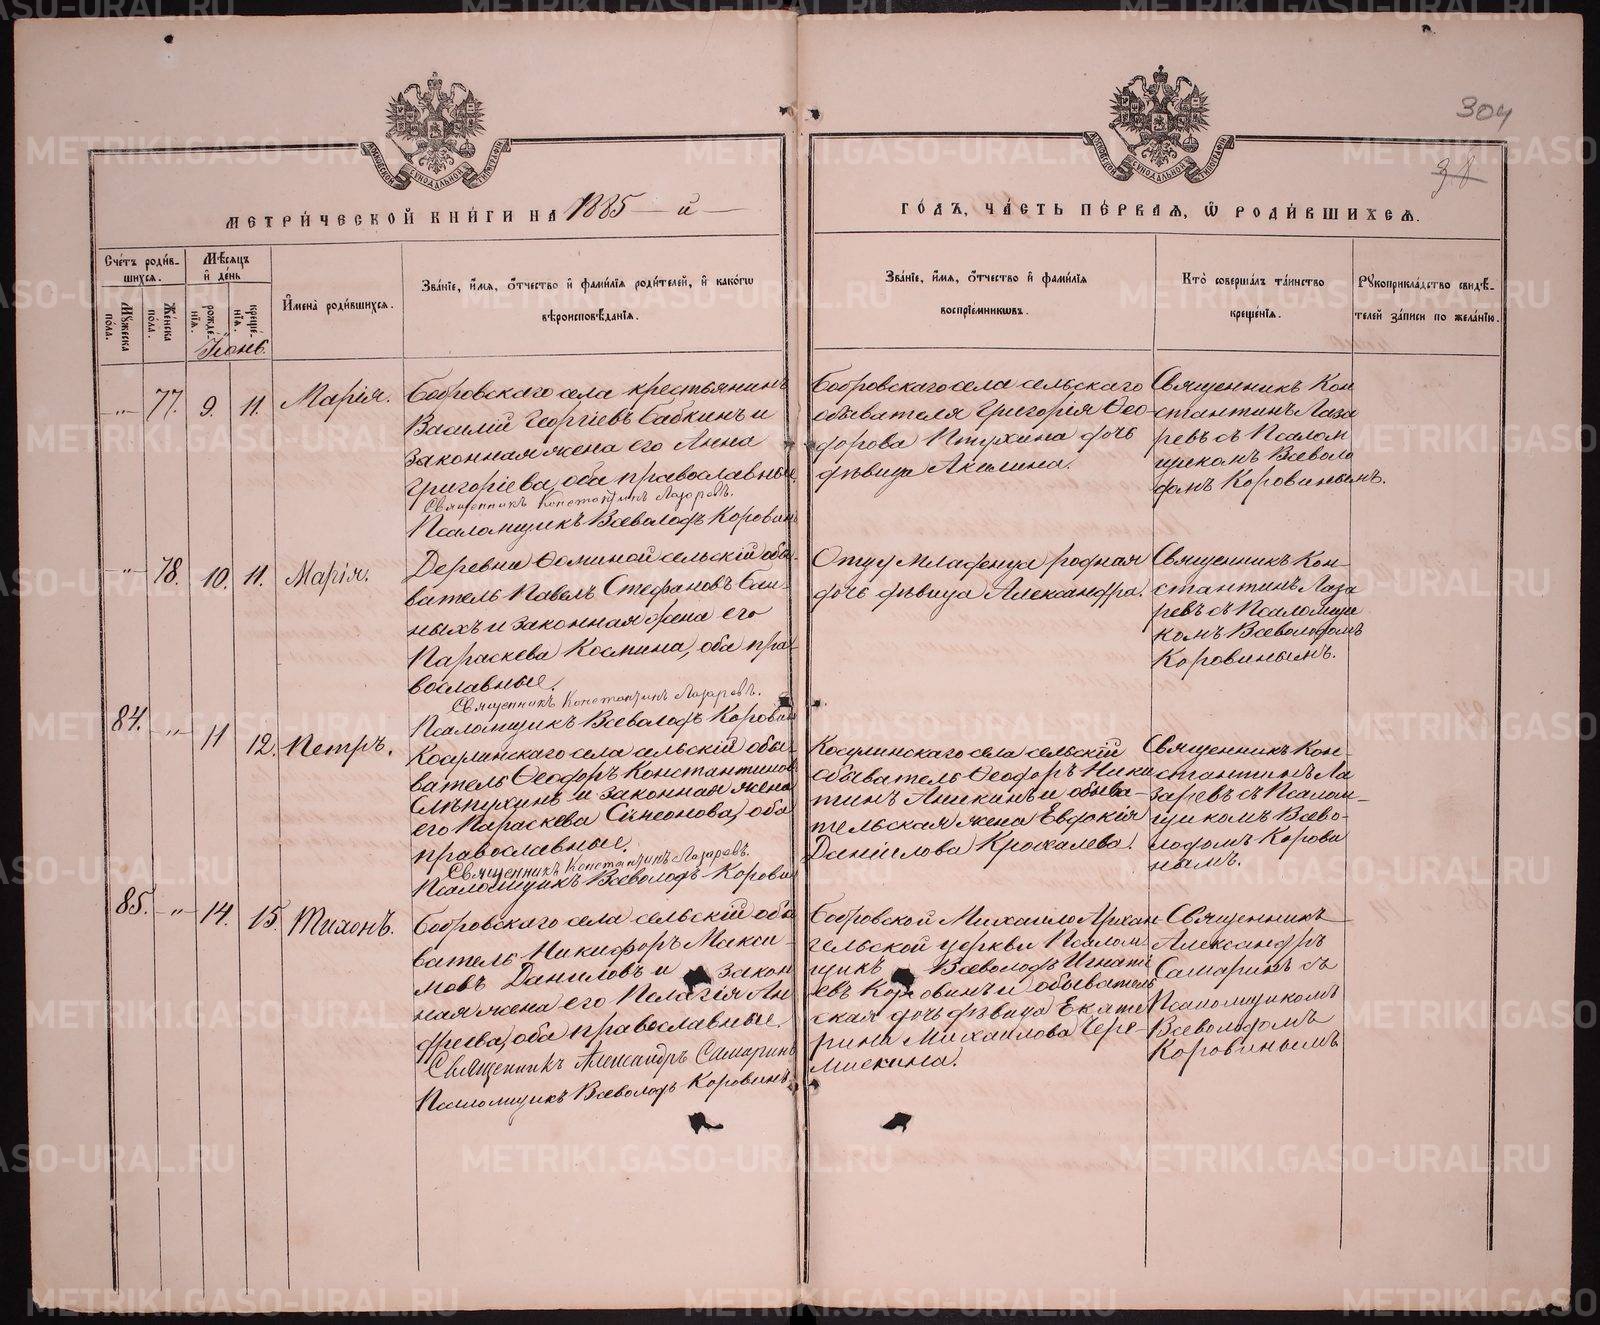 304
МЕТРИ́ЧЕСКОЙ КНИ́ГИ НА 1885 — й —
ГО́ДЪ, ЧА́СТЬ ПЕ́РВАѦ, Ѿ РОДИ́ВШИХСѦ.
Сче́тъ роди́в-
шихсѧ.
Мꙋ́жеска по́ла.
Же́нска по́ла.
Мѣ́сѧцъ и де́нь
рожде́нїѧ.
креще́нїѧ.
Имена̀ роди́вшихсѧ.
Зва́нїе, и́мѧ, ѻ́тчество и фами́лїѧ роди́телей, и како́гѡ
вѣроисповѣ́данїѧ.
Зва́нїе, и́мѧ, ѻ́тчество и фами́лїѧ
воспрїе́мникѡвъ.
Кто̀ соверша́лъ та́инство
креще́нїѧ.
Рꙋкоприкла́дство свидѣ́-
телей за́писи по жела́нїю.
Іюнь.
— „ — 77. 9. 11. Марія.
Бобровскаго села крестьянинъ
Василій Георгіевъ Бабкинъ и
законная жена его Анна
Григоріева, оба православные.
Священникъ Константинъ Лазаревъ.
Псаломщикъ Всеволодъ Коровинъ
Бобровскаго села сельскаго
обывателя Григорія Ѳео-
дорова Птухина дочь
дѣвица Акилина.
Священникъ Кон
стантинъ Лаза
ревъ съ Псалом
щикомъ Всеволо
домъ Коровинымъ.
— „ — 78. 10. 11. Марія.
Деревни Ѳоминой сельскій обы-
ватель Павелъ Стефановъ Бан-
ныхъ и законная жена его
Параскева Космина, оба пра-
вославные.
Священникъ Константинъ Лазаревъ.
Псаломщикъ Всеволодъ Коровинъ
Отцу младенца родная
дочь дѣвица Александра.
Священникъ Кон-
стантинъ Лаза
ревъ съ Псаломщи
комъ Всеволодомъ
Коровинымъ.
84. — „ — 11 12. Петръ.
Косулинскаго села сельскій обы-
ватель Ѳеодоръ Константинов
Слѣпухинъ и законная жена
его Параскева Сімеонова, оба
православные.
Священникъ Константинъ Лазаревъ.
Псаломщикъ Всеволодъ Коровин
Косулинскаго села сельскій
обыватель Ѳеодоръ Ники
тинъ Аникинъ и обыва-
тельская жена Евдокія
Даніилова Крокалева.
Священникъ Кон-
стантинъ Ла
заревъ съ Псалом-
щикомъ Всево-
лодомъ Корови
нымъ.
85. — „ — 14. 15. Тихонъ.
Бобровскаго села сельскій обы
ватель Никифоръ Макси-
мовъ Даниловъ и закон
ная жена его Пелагія Ан
дреева, оба православные.
Священникъ Александръ Самаринъ
Псаломщикъ Всеволодъ Коровинъ
Бобровской Михаило Архан
гельской церкви Псалом
щикъ Всеволодъ Игнаті
евъ Коровинъ и обыватель
ская дочь дѣвица Екате
рина Михаилова Чере-
мискина.
Священникъ
Александръ
Самаринъ съ
Псаломщикомъ
Всеволодомъ
Коровинымъ